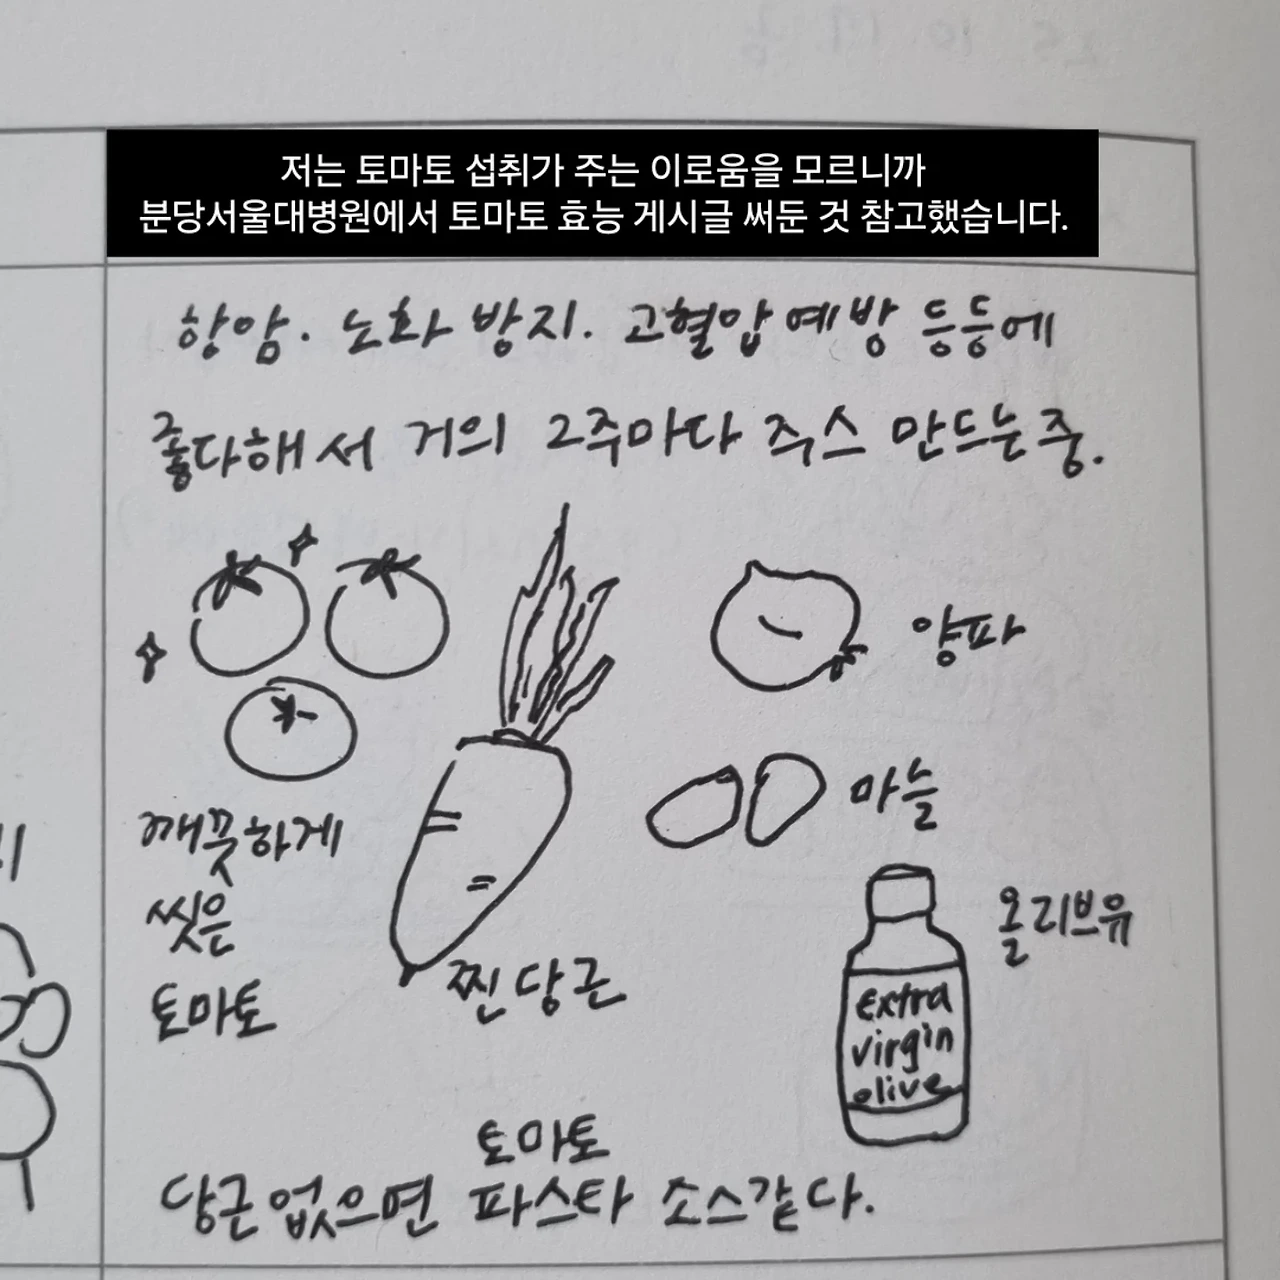 저는 토마토 섭취가 주는 이로움을 모르니까
분당서울대병원에서 토마토 효능 게시글 써둔 것 참고했습니다.
항암. 노화 방지. 고혈압 예방 등등에
좋다해서 거의 2주마다 주스 만드는중.
양파
마늘
깨끗하게
씻은
토마토
찐당근
올리브유
Extra
virgin
olive
토마토
당근없으면 파스타 소스같다.